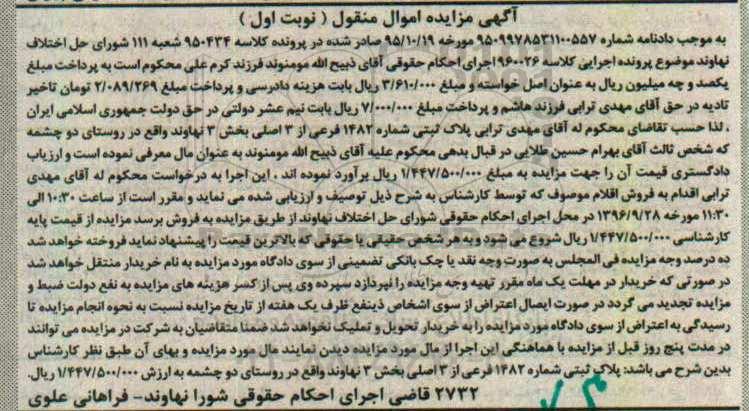 آگهی مزایده اموال منقول ( نوبت اول )
به موجب دادنامه شماره ۹۵۰۹۹۷۸۵۳۱۱۰۰۵۵۷ مورخه ۹۵/۱۰/۱۹ صادر شده در پرونده کلاسه ۹۵۰۴۳۴ شعبه ۱۱۱ شورای حل اختلاف
نهاوند موضوع پرونده اجرایی کلاسه ۹۶۰۰۲۶ اجرای احکام حقوقی آقای ذبیح الله مومنوند فرزند کرم علی محکوم است به پرداخت مبلغ
یکصد و چه میلیون ریال به عنوان اصل خواسته و مبلغ ۳/۶۱۰/۰۰۰ ریال بابت هزینه دادرسی و پرداخت مبلغ ۲/۰۸۹/۲۶۹ تومان تاخیر
تادیه در حق آقای مهدی ترابی فرزند هاشم و پرداخت مبلغ ۷/۰۰۰/۰۰۰ ریال بابت نیم عشر دولتی در حق دولت جمهوری اسلامی ایران
، لذا حسب تقاضای محکوم له آقای مهدی ترابی پلاک ثبتی شماره ۱۴۸۲ فرعی از ۳ اصلی بخش ۳ نهاوند واقع در روستای دو چشمه
که شخص ثالث آقای بهرام حسین طلایی در قبال بدهی محکوم علیه آقای ذبیح الله مومنوند به عنوان مال معرفی نموده است و ارزیاب
دادگستری قیمت آن را جهت مزایده به مبلغ ۱/۴۴۷/۵۰۰/۰۰۰ ریال برآورد نموده اند ، این اجرا به درخواست محکوم له آقای مهدی
ترابی اقدام به فروش اقلام موصوف که توسط کارشناس به شرح ذیل توصیف و ارزیابی شده می نماید و مقرر است از ساعت ۱۰:۳۰ الی
۱۱:۳۰ مورخه ۱۳۹۶/۹/۲۸ در محل اجرای احکام حقوقی شورای حل اختلاف نهاوند از طریق مزایده به فروش برسد مزایده از قیمت پایه
کارشناسی ۱/۴۴۷/۵۰۰/۰۰۰ ریال شروع می شود و به هر شخص حقیقی یا حقوقی که بالاترین قیمت را پیشنهاد نماید فروخته خواهد شد
ده درصد وجه مزایده فی المجلس به صورت وجه نقد یا چک بانکی تضمینی از سوی دادگاه مورد مزایده به نام خریدار منتقل خواهد شد
در صورتی که خریدار در مهلت یک ماه مقرر تهیه وجه مزایده را نپردازد سپرده وی پس از کسر هزینه های مزایده به نفع دولت ضبط و
مزایده تجدید می گردد در صورت ایصال اعتراض از سوی اشخاص ذینفع ظرف یک هفته از تاریخ مزایده نسبت به نحوه انجام مزایده تا
رسیدگی به اعتراض از سوی دادگاه مورد مزایده را به خریدار تحویل و تملیک نخواهد شد ضمنا متقاضیان به شرکت در مزایده می توانند
در مدت پنج روز قبل از مزایده با هماهنگی این اجرا از مال مورد مزایده دیدن نمایند مال مورد مزایده و بهای آن طبق نظر کارشناس
بدین شرح می باشد: پلاک ثبتی شماره ۱۴۸۲ فرعی از ۳ اصلی بخش ۳ نهاوند واقع در روستای دو چشمه به ارزش ۱/۴۴۷/۵۰۰/۰۰۰ ریال.
۲۷۳۲ قاضی اجرای احکام حقوقی شورا نهاوند- فراهانی علوی